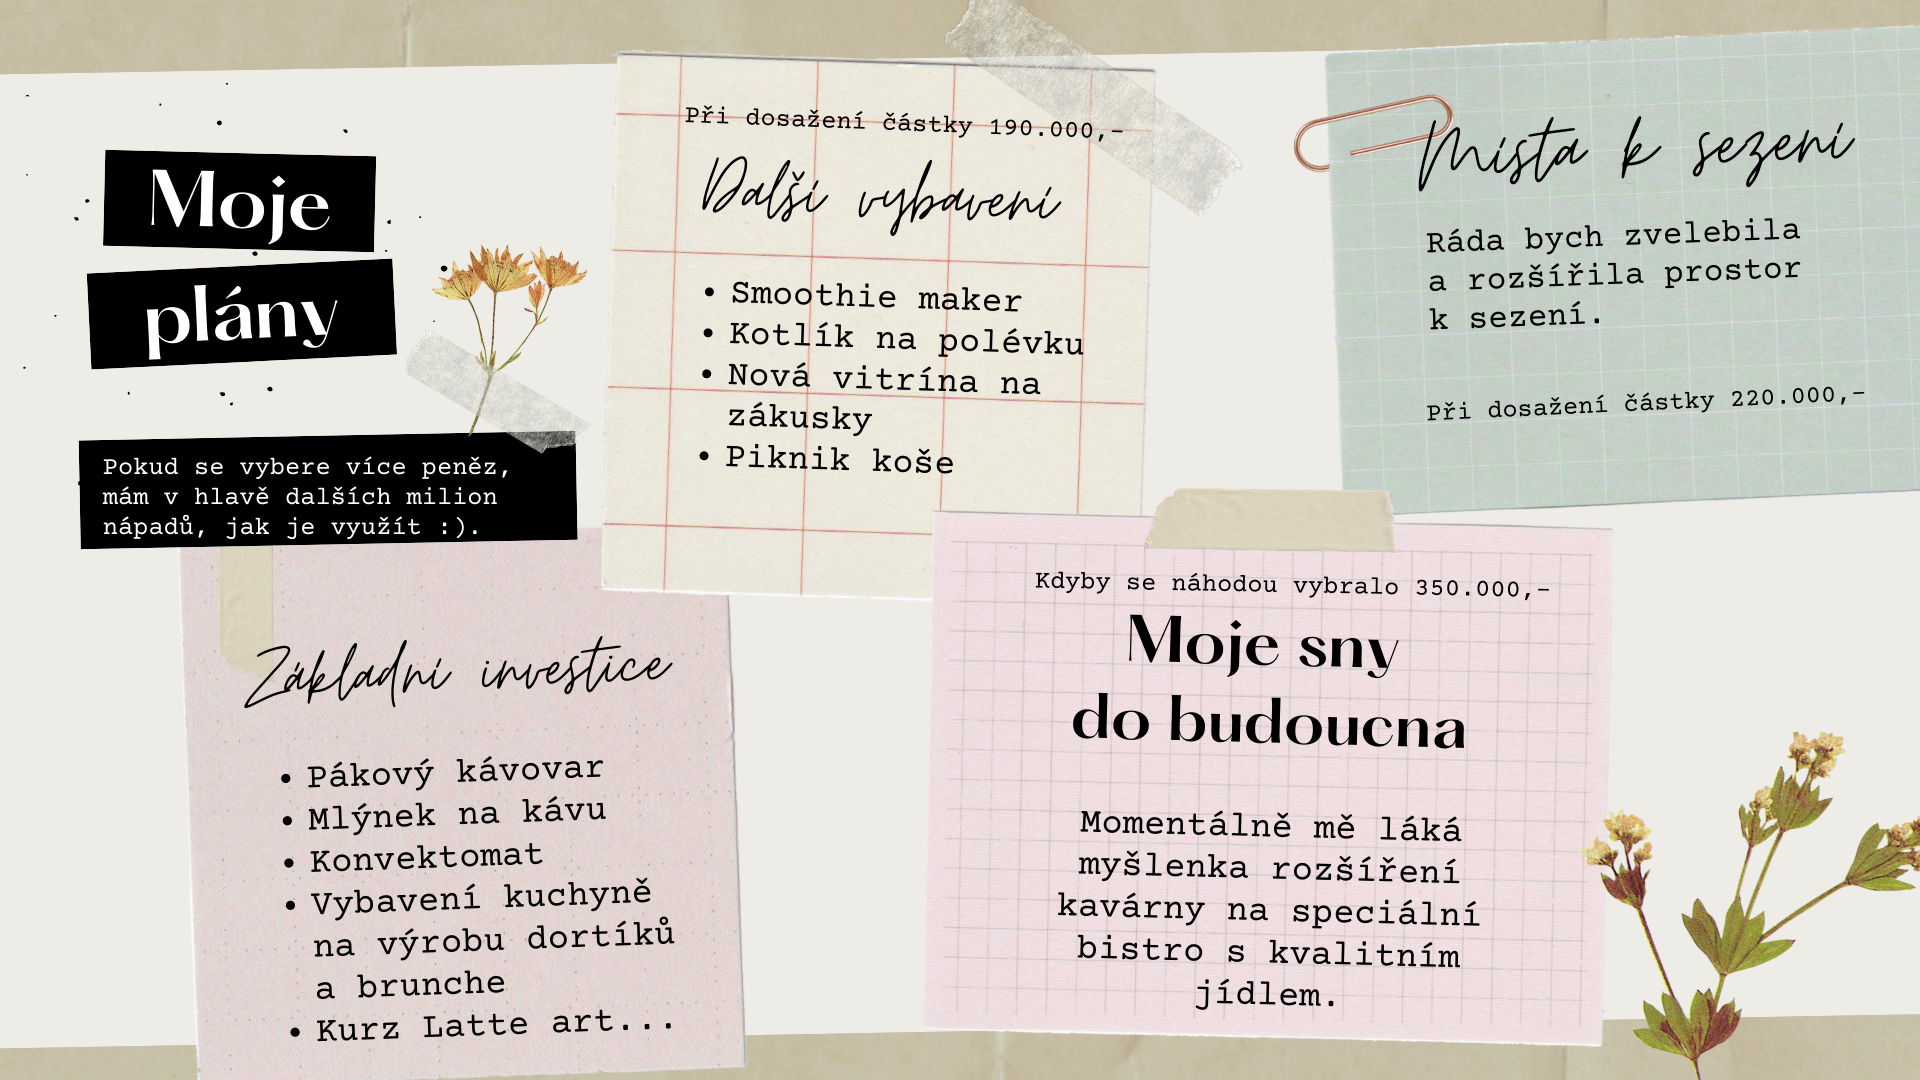 Moje
plány
Pokud se vybere více peněz,
mám v hlavě dalších milion
nápadů, jak je využít :).
Základní investice
• Pákový kávovar
• Mlýnek na kávu
• Konvektomat
• Vybavení kuchyně
na výrobu dortíků
a brunche
• Kurz Latte art...
Při dosažení částky 190.000,-
Další vybavení
• Smoothie maker
• Kotlík na polévku
• Nová vitrína na
zákusky
• Piknik koše
Místa k sezení
Ráda bych zvelebila
a rozšířila prostor
k sezení.
Při dosažení částky 220.000,-
Kdyby se náhodou vybralo 350.000,-
Moje sny
do budoucna
Momentálně mě láká
myšlenka rozšíření
kavárny na speciální
bistro s kvalitním
jídlem.